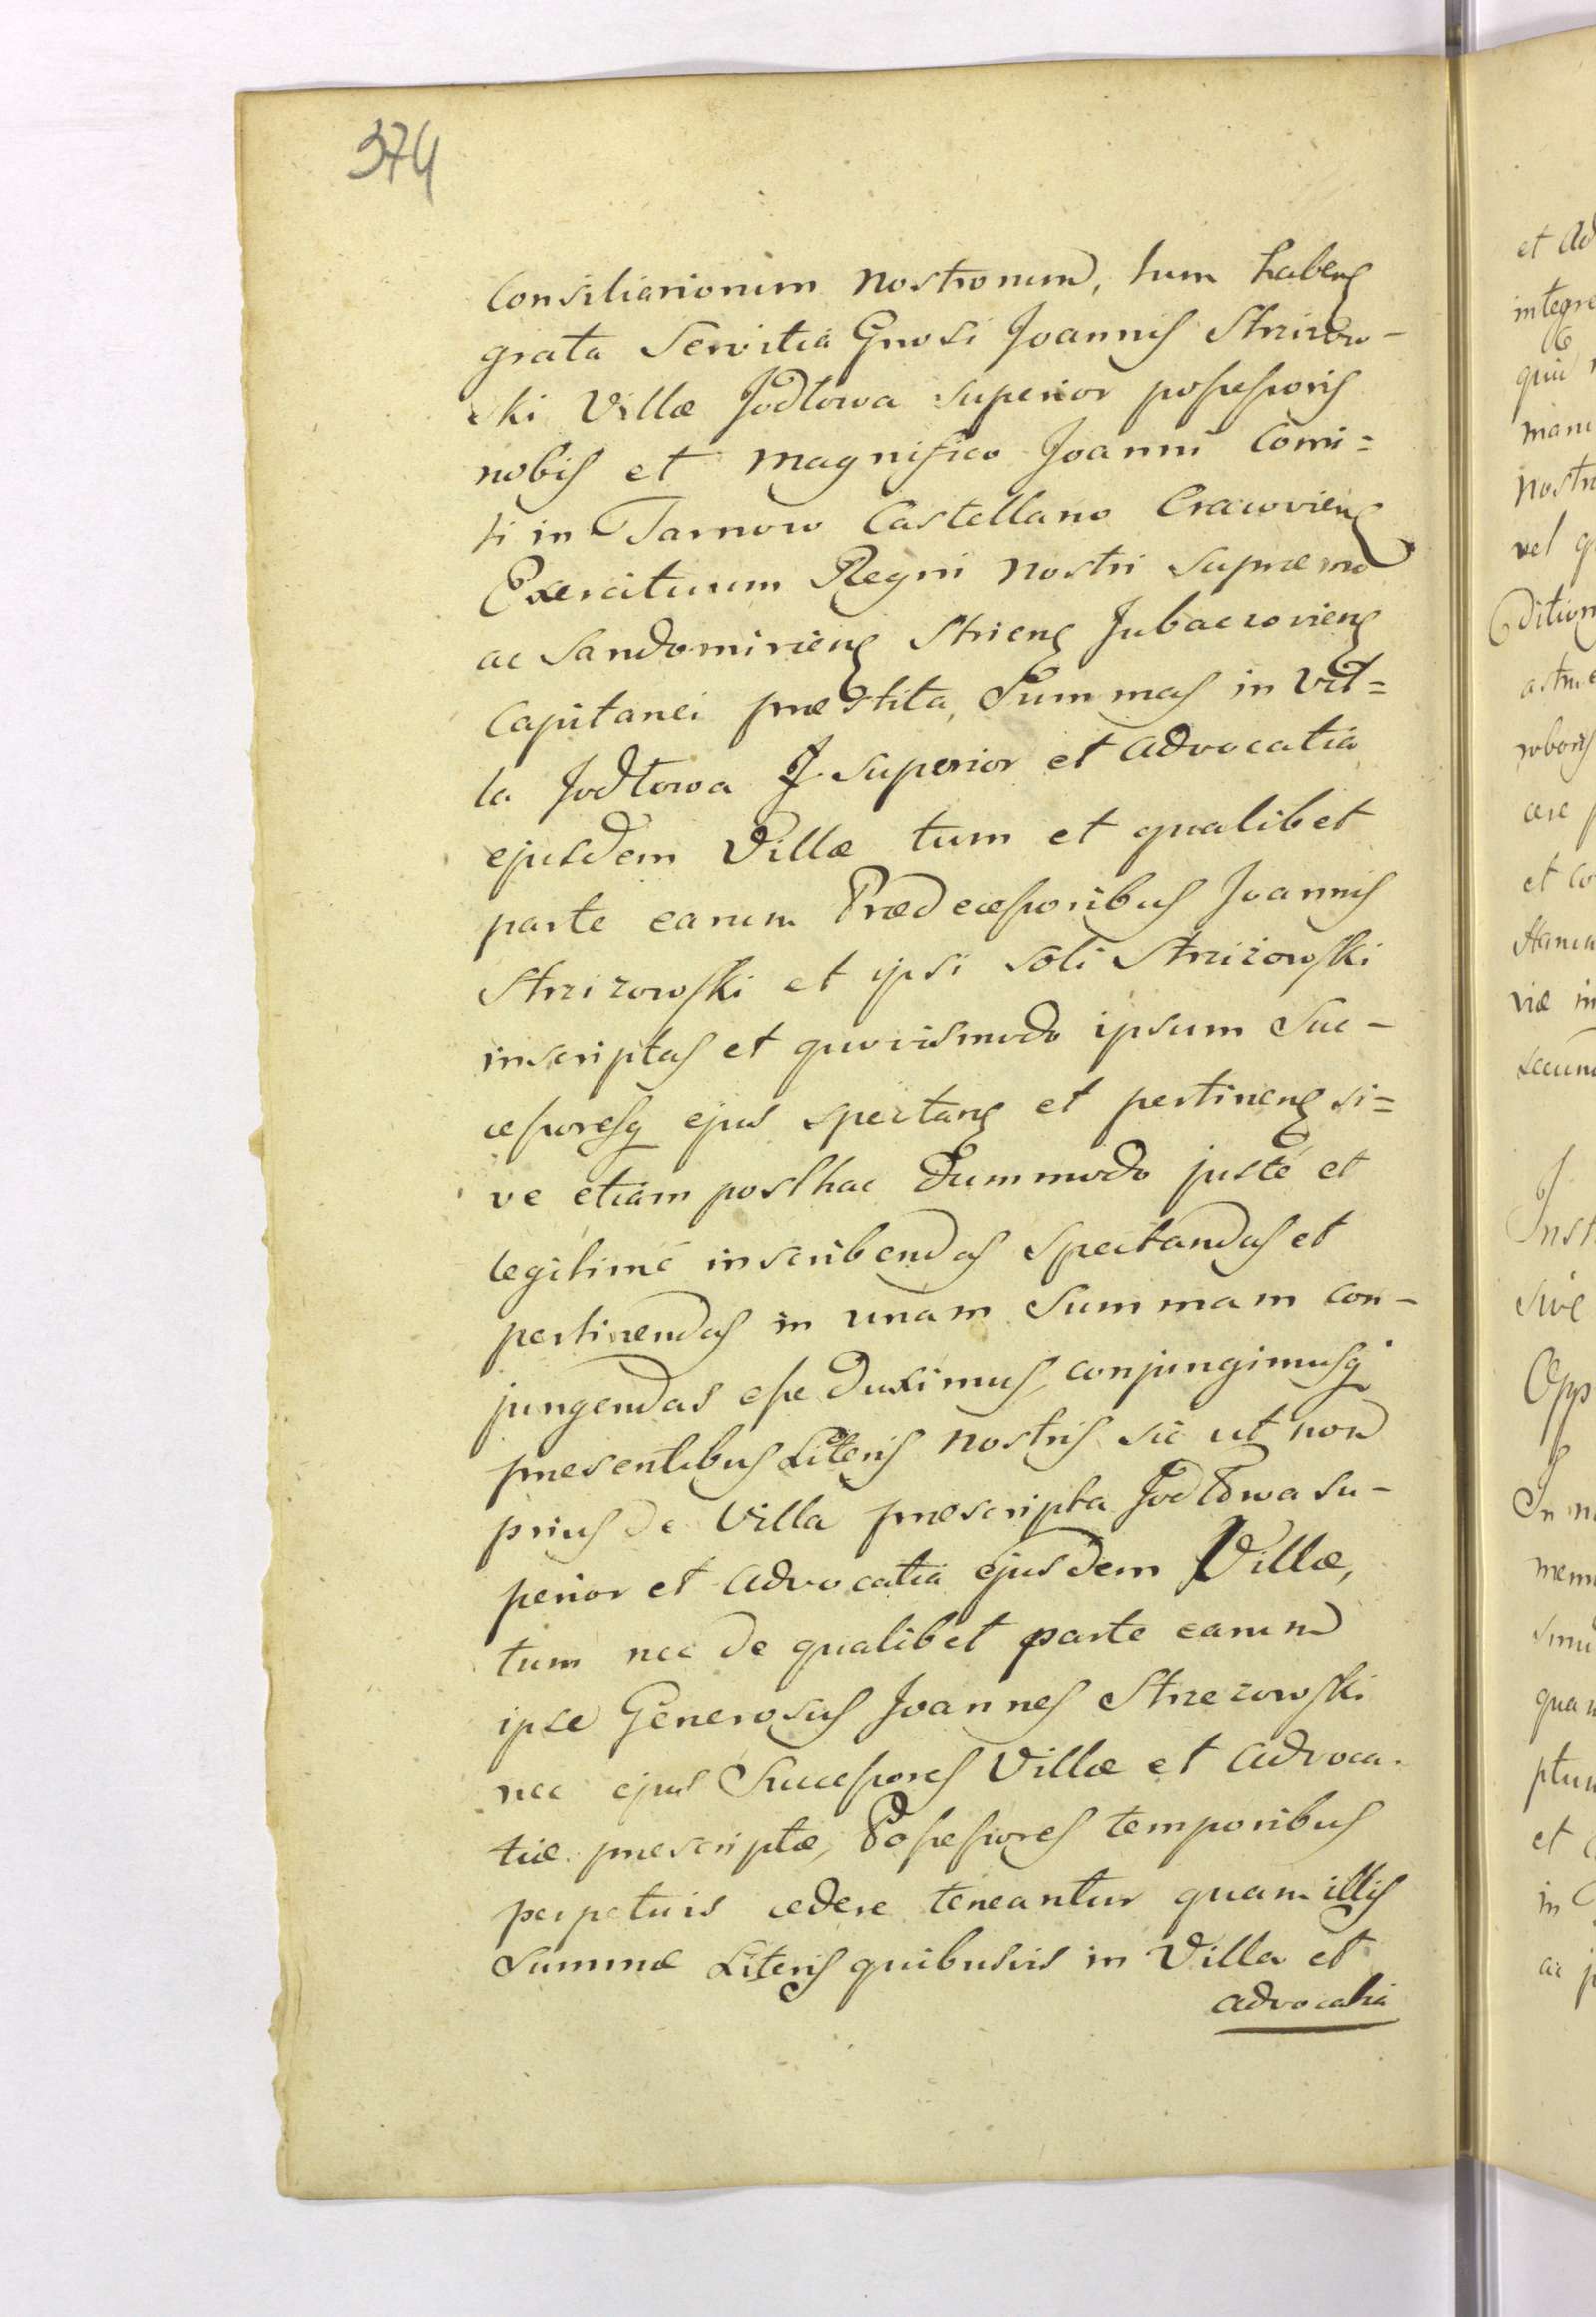 374
Consiliariorum Nostrorum, tum habens
grata Servitia Gnosi Joannis Strizow-
ski Villæ Jodłowa superior possessoris
nobis et Magnifico Joanni Comi=
ti in Tarnow Castellano Cracoviens
Exercituum Regni Nostri Supremo
ac Sandomiriens Striens Lubaczoviens
Capitanei præstita, Summas in Vil=
la Jodłowa superior et Advocatia
ejusdem Villæ tum et qualibet
parte earum Prædecessoribus Joannis
Strizowski et ipsi soli Strizowski
inscriptas et quovismodo ipsum Suc-
cessoresq ejus spectans et pertinens si=
ve etiam posthac dummodo justé et
legitimé inscribendas spectandas et
pertinendas in unam Summam con-
jungendas esse duximus, conjungimusq
præsentibus Literis Nostris sic ut non
prius de Villa præscripta Jodłowa su-
perior et Advocatia ejusdem Villæ,
tum nec de qualibet parte earum
ipse Generosus Joannes Strzezowski
nec ejus Successores Villæ et Advoca-
tiæ præscriptæ, Possessores temporibus
perpetuis cedere teneantur quam illis
Summæ Literis quibusvis in Villa et
Advocatia
et Ad
integre
quid
manu
Nostr
vel q
ditiom
et co
viæ in
secund
Inst
sive
Opp
In n
mem
quam
ptum
et
in
ac p